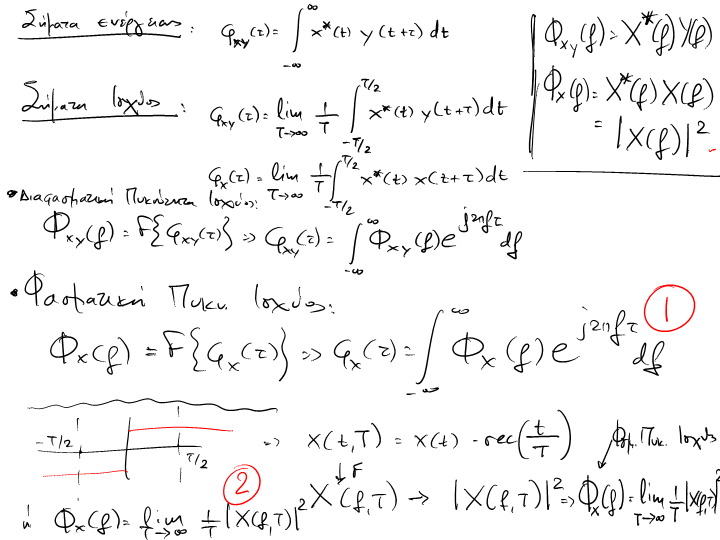 Σήματα ενέργειας : φ_xy(τ) = ∫_{-∞}^{∞} x*(t) y(t+τ) dt
Φ_xy(f) = X*(f) Y(f)
Φ_x(f) = X*(f) X(f)
= |X(f)|²
Σήματα Ισχύος : φ_xy(τ) = lim_{T→∞} 1/T ∫_{-T/2}^{T/2} x*(t) y(t+τ) dt
φ_x(τ) = lim_{T→∞} 1/T ∫_{-T/2}^{T/2} x*(t) x(t+τ) dt
• Διαφασματική Πυκνότητα Ισχύος:
Φ_xy(f) = F{φ_xy(τ)} => φ_xy(τ) = ∫_{-∞}^{∞} Φ_xy(f) e^{j2πfτ} df
• Φασματική Πυκν. Ισχύος:
1
Φ_x(f) = F{φ_x(τ)} => φ_x(τ) = ∫_{-∞}^{∞} Φ_x(f) e^{j2πfτ} df
-T/2 T/2 => x(t,T) = x(t) · rec(t/T) Φασ. Πυκ. Ισχύος
2
↓ F
X(f,T) → |X(f,T)|² => Φ_x(f) = lim_{T→∞} 1/T |X(f,T)|²
ή Φ_x(f) = lim_{T→∞} 1/T |X(f,T)|²